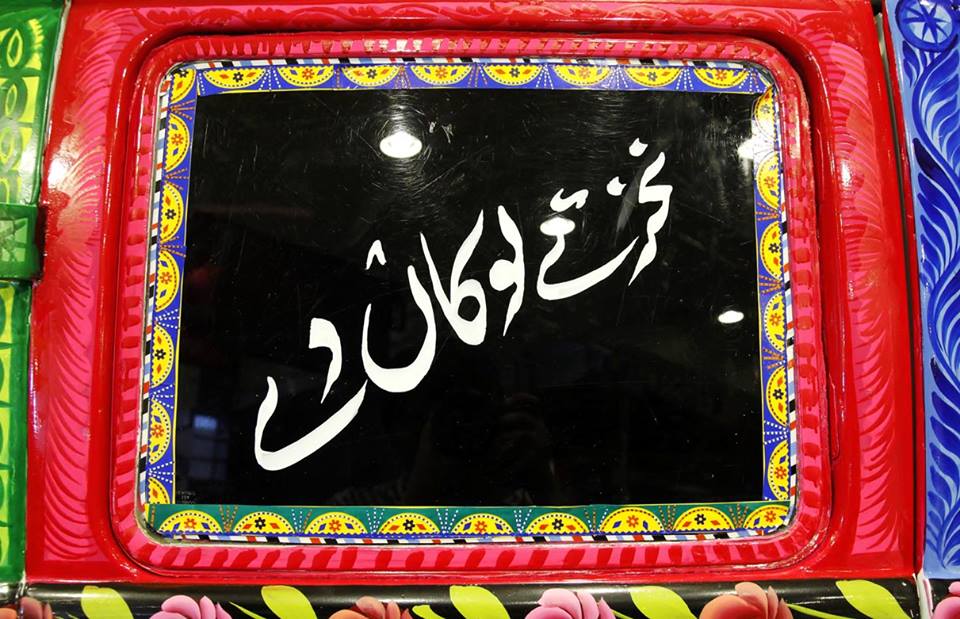 نخرتے لوکاں دے